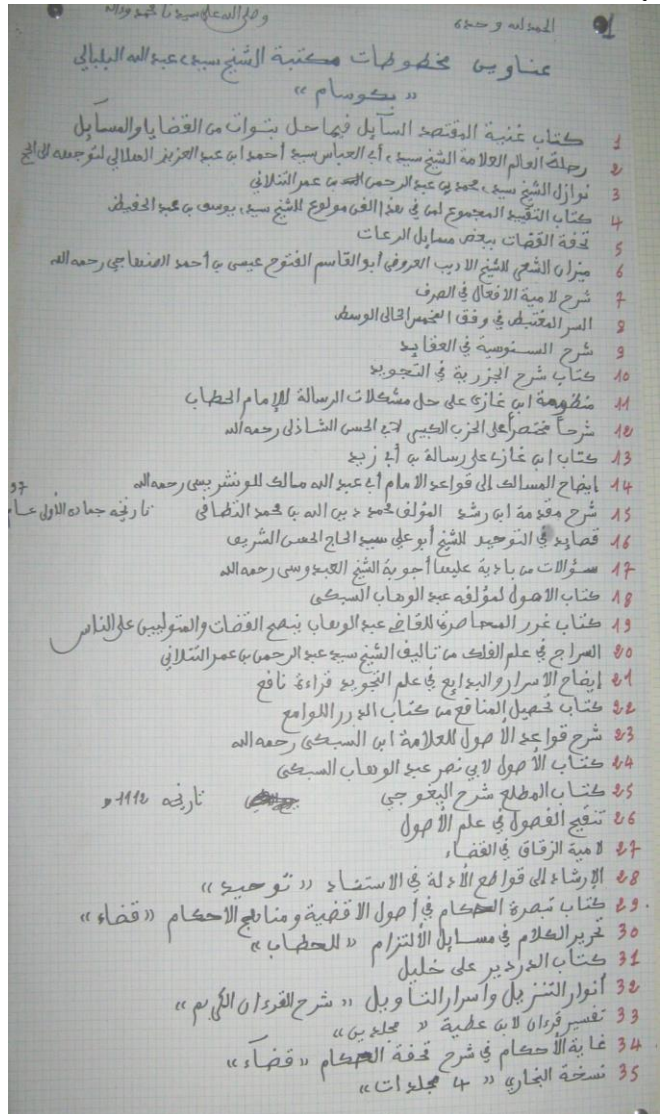 الحمد لله وحده وصلى الله على سيدنا محمد وآله 1
عناوين مخطوطات مكتبة الشيخ سيدي عبد الله البلبالي
«بكوسام»
1 كتاب غنية المقتصد السآيل فيما حل بتوات من القضايا والمسآيل
2 رحلة العالم العلامة الشيخ سيدي أبي العباس سيد أحمد ابن عبد العزيز الهلالي لتوجهه إلى الحج
3 نوازل الشيخ سيدي محمد بن عبد الرحمن بن عمر التنلاني
4 كتاب التقييد المجموع لمن في هذا الفن مولوع للشيخ سيدي يوسف بن عبد الحفيظ
5 تحفة القضات ببعض مسايل الرعات
6 ميزان الشعر للشيخ الاديب العروضي أبو القاسم الفتوح عيسى بن أحمد الصنهاجي رحمه الله
7 شرح لامية الافعال في الصرف
8 السر المغتبط في وفق المخمس الخالي الوسط
9 شرح السنوسية في العقايد
10 كتاب شرح الجزرية في التجويد
11 منظومة ابن غازي على حل مشكلات الرسالة للإمام الحطاب
12 شرحاً مختصراً على الحزب الكبير لابي الحسن الشاذلي رحمه الله
13 كتاب ابن غازي على رسالة بن أبي زيد
14 إيضاح المسالك إلى قواعد الامام أبي عبد الله مالك للونشريسي رحمه الله
15 شرح مقدمة ابن رشد المؤلف محمد بن الله بن محمد النظافى تاريخه جمادى الأولى عام 97
16 قصايد في التوحيد للشيخ أبو علي سيد الحاج الحسن الشريف
17 سؤالات من بادية عليها أجوبة الشيخ العبدوسي رحمه الله
18 كتاب الاصول لمؤلفه عبد الوهاب السبكي
19 كتاب غرر المحاصرة للقاضي عبد الوهاب بنصح القضات والمتوليين على الناس
20 السراج في علم الفلك من تاليف الشيخ سيد عبد الرحمن بن عمر التنلاني
21 إيضاح الاسرار والبدايع في علم التجويد قراءة نافع
22 كتاب تحصيل المنافع من كتاب الدرر اللوامع
23 شرح قواعد الأصول للعلامة ابن السبكي رحمه الله
24 كتاب الأصول لابي نصر عبد الوهاب السبكي
25 كتاب المطلع شرح اليغوجي تاريخه 1112 ه
26 تنقيح الفصول في علم الأصول
27 لامية الزقاق في القضاء
28 الإرشاد إلى قواطع الأدلة في الاستقاد «توحيد»
29 كتاب تبصرة الحكام في أصول الاقضية ومناهج الاحكام «قضاء»
30 تحرير الكلام في مسايل الألتزام «للحطاب»
31 كتاب الدردير على خليل
32 أنوار التنزيل واسرار التاويل «شرح القرءان الكريم»
33 تفسير قرءان لابن عطية «مجلدين»
34 غاية الأحكام في شرح تحفة الحكام «قضآء»
35 نسخة البخاري «4 مجلدات»